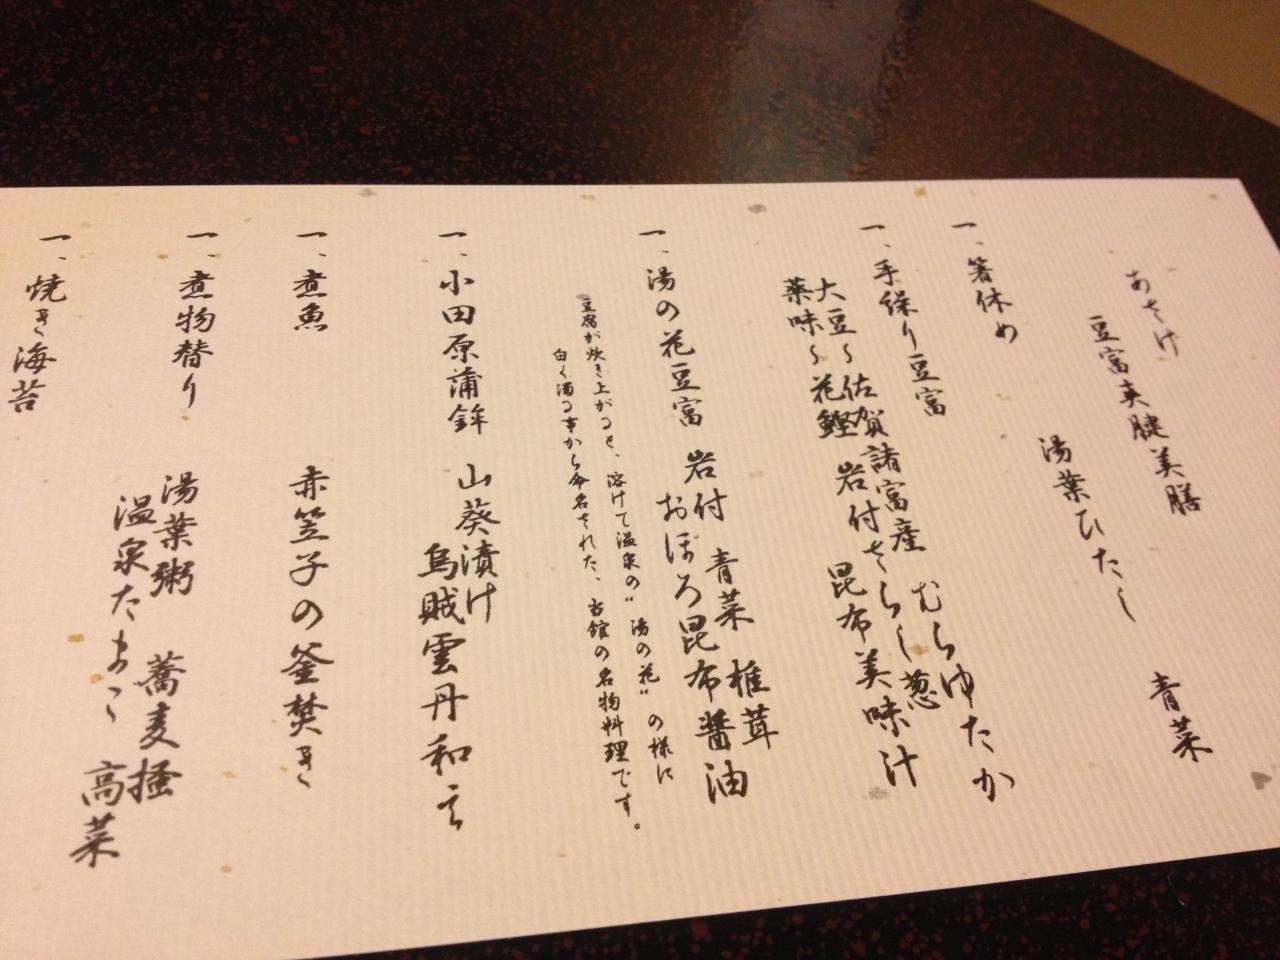 あさけ
豆富美健美膳
一、箸休め
湯葉ひたし 青菜
一、手繰り豆富
大豆〜佐賀諸富産 むらゆたか
薬味〜花鰹 岩付さらし葱
昆布美味汁
一、湯の花豆富 岩付 青菜 椎茸
おぼろ昆布醤油
豆腐が炊き上がると、溶けて温泉の〝湯の花〟の様に
白く濁る事から命名された、古館の名物料理です。
一、小田原蒲鉾 山葵漬け
烏賊雲丹和え
一、煮魚 赤笠子の釜焚き
一、煮物替り 湯葉粥 蕎麦掻
温泉たまご 高菜
一、焼き海苔